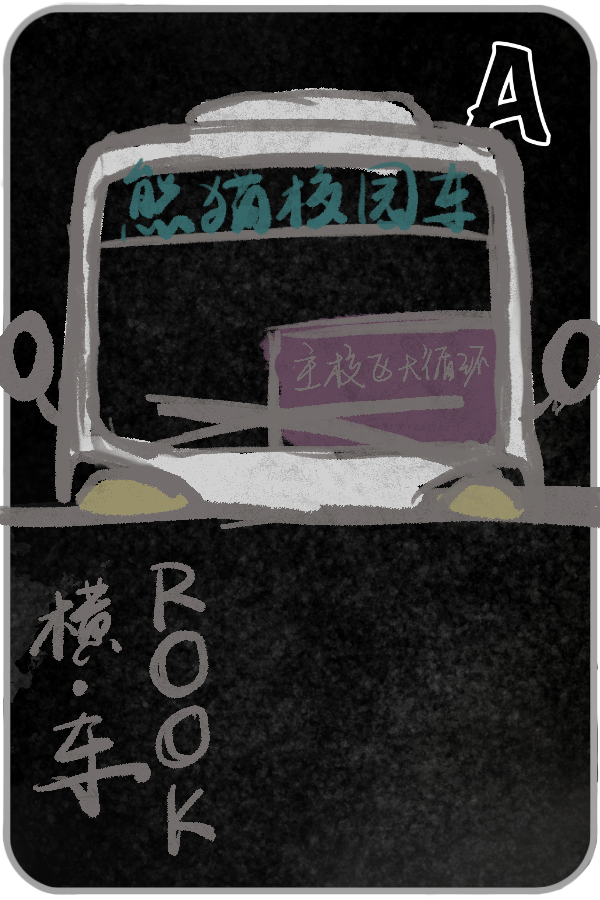 A
熊猫校园车
主校飞大循环
横·车
ROOK